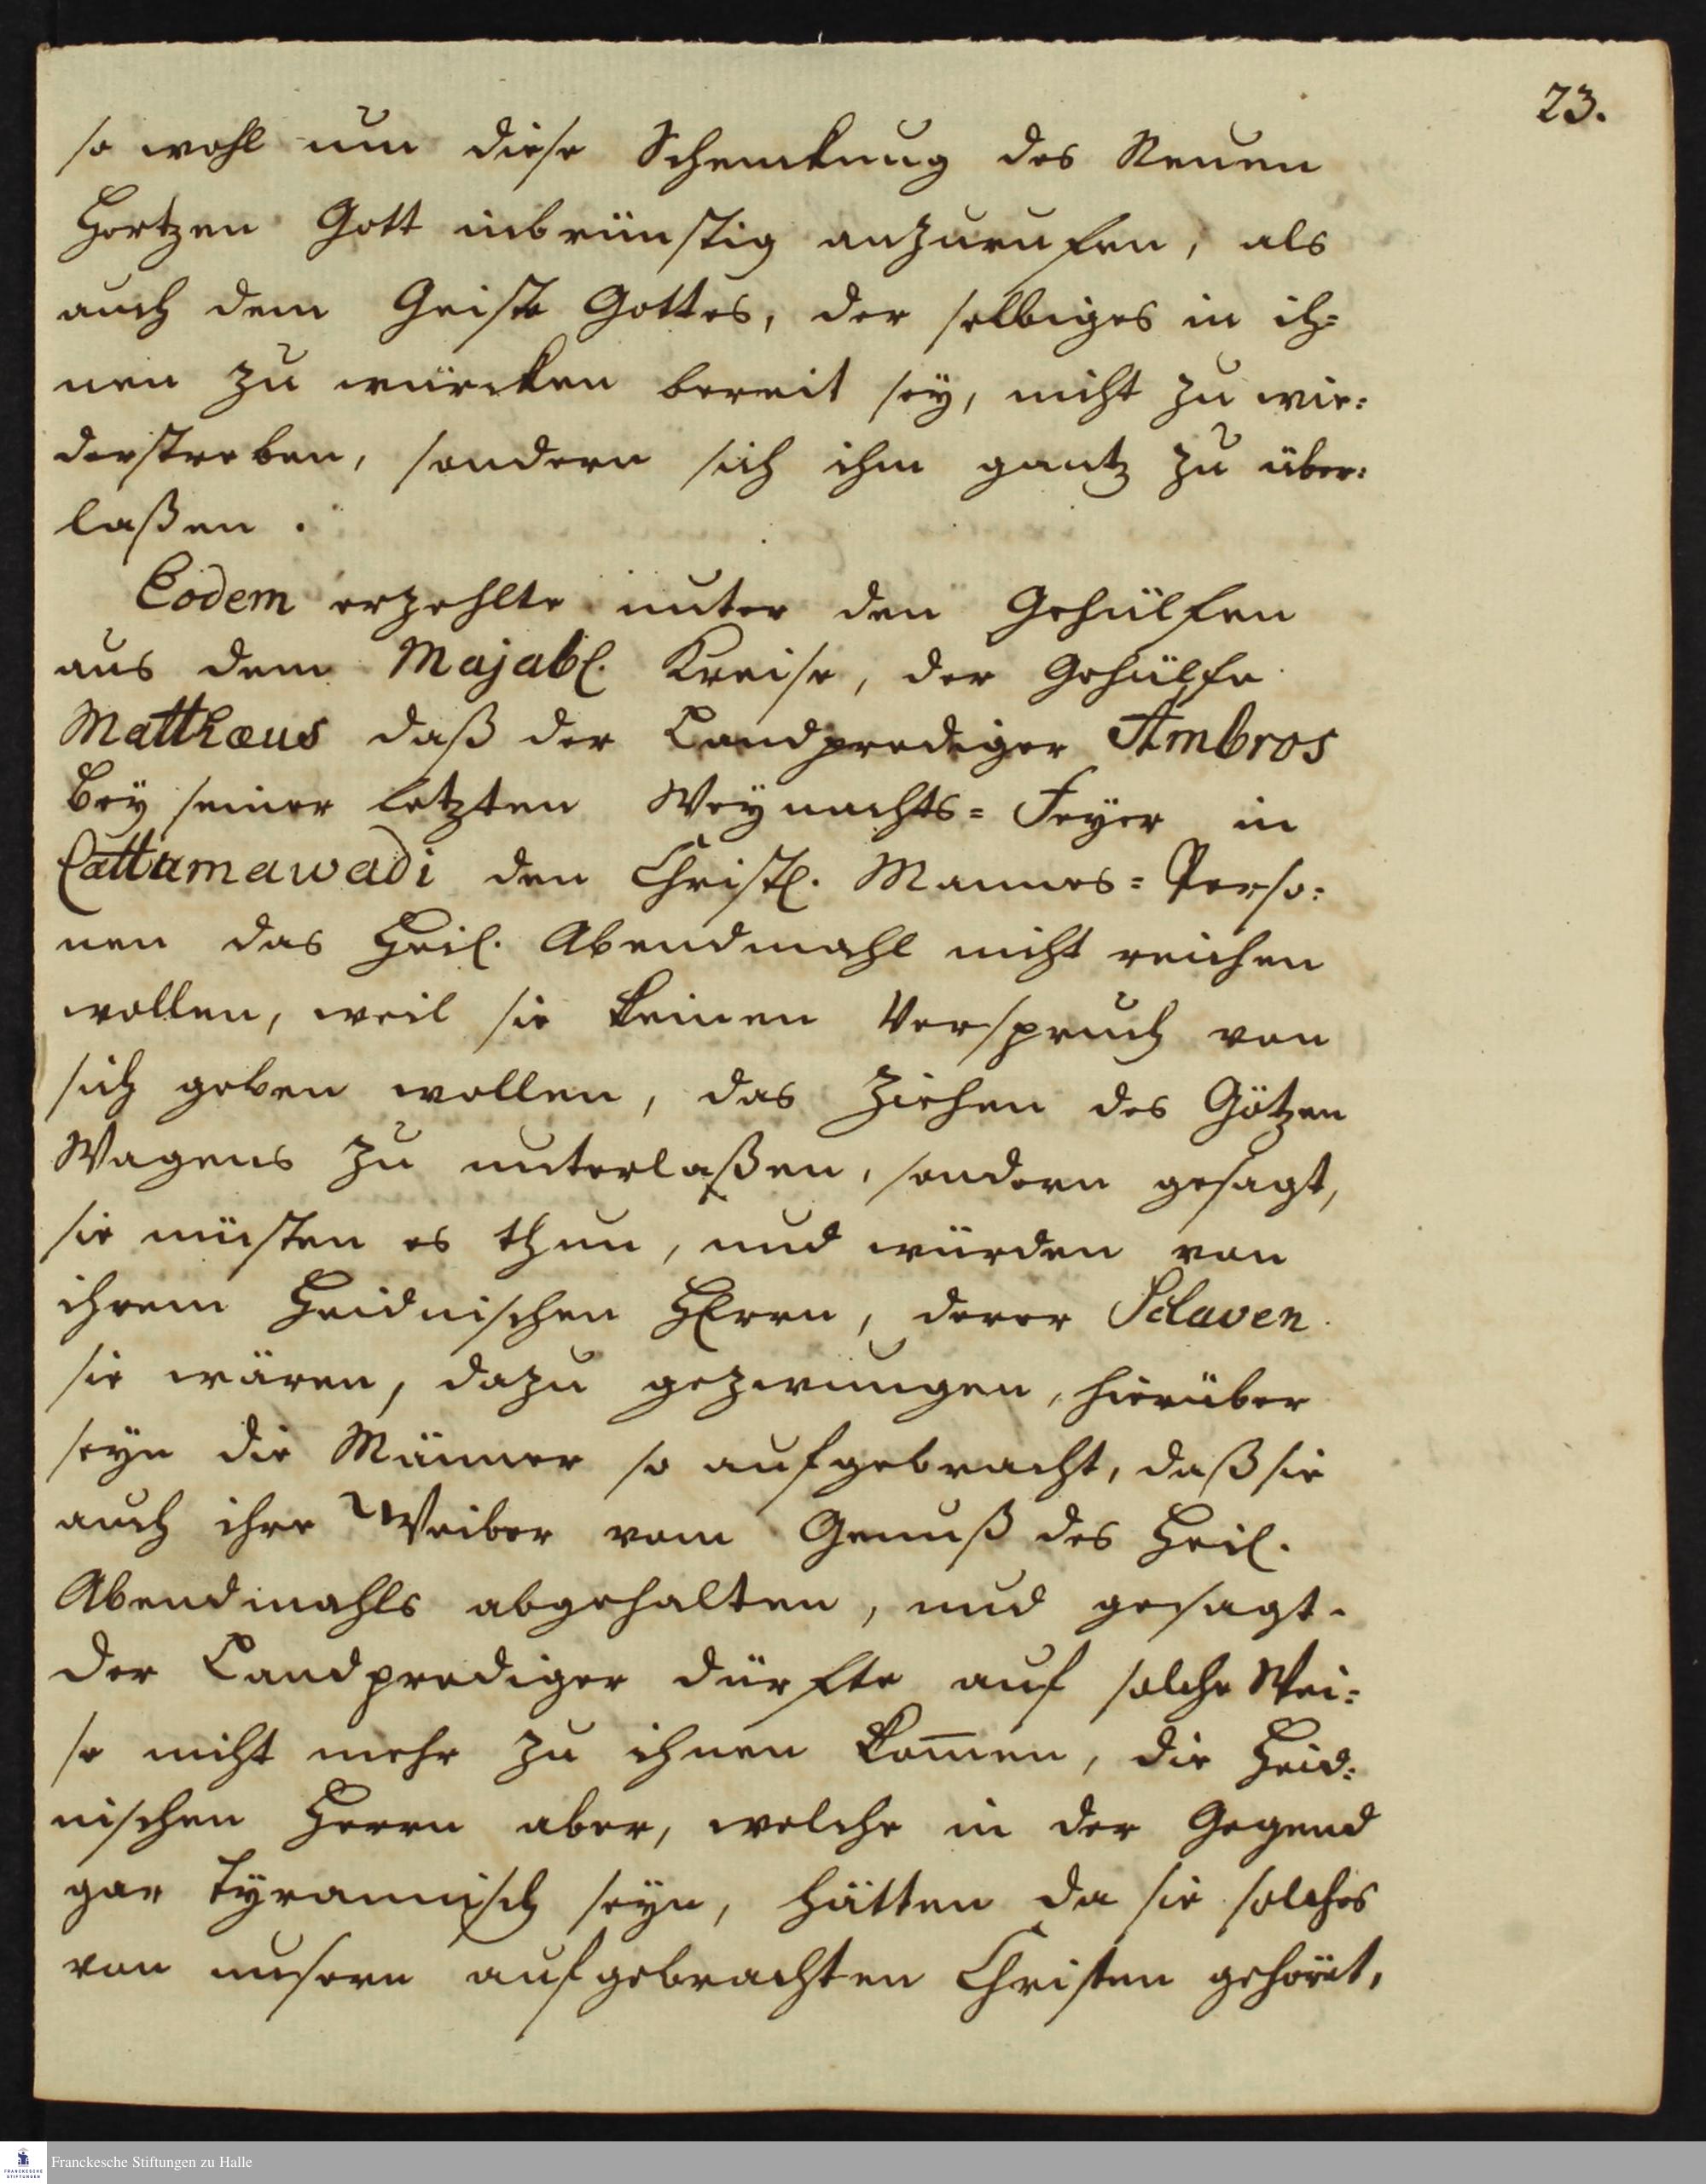 23.
so wohl um diese Schenckung des Neuen
Hertzen Gott inbrünstig anzurufen, als
auch dem Geiste Gottes, der selbiges in ih=
nen zu würcken bereit sey, nicht zu wie=
derstreben, sondern sich ihm gantz zu über=
laßen.
Eodem erzehlte unter den Gehülfen
aus dem Majab. Kreise, der Gehülfe
Matthæus daß der Landprediger Ambros
bey seiner letzten Weynachts=Feyer in
Cattamawadi den Christl. Mannes=Perso=
nen das Heil. Abendmahl nicht reichen
wollen, weil sie keinen Verspruch von
sich geben wollen, das Ziehen des Götzen
Wagens zu unterlaßen, sondern gesagt,
sie müsten es thun, und würden von
ihrem Heidnischen HErrn, derer Sclaven
sie wären, dazu gezwungen, hierüber
seyn die Männer so aufgebracht, daß sie
auch ihre Weiber vom Genuß des Heil.
Abendmahls abgehalten, und gesagt.
der Landprediger dürfte auf solche Wei=
se nicht mehr zu ihnen kom̅en, die Heid=
nischen Herrn aber, welche in der Gegend
gar tyrannisch seyn, hätten da sie solches
von unsern aufgebrachten Christen gehört,
Franckesche Stiftungen zu Halle
FRANCKESCHE
STIFTUNGEN